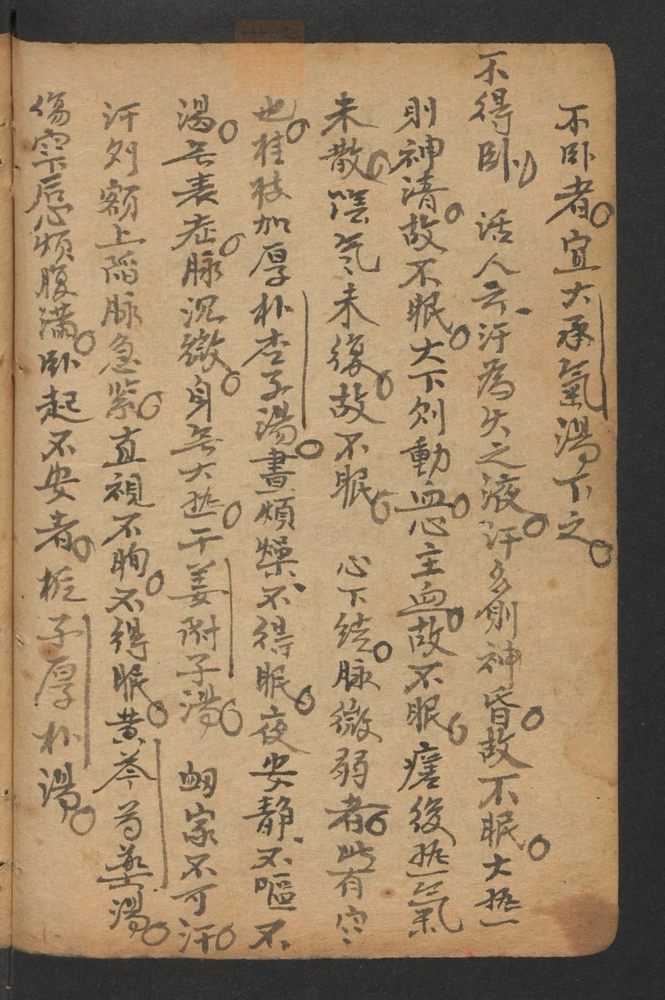 不卧者宜大承氣湯下之
不得卧 活人云汗為心之液汗多則神昏故不眠大热
則神清故不眠大下則動血心主血故不眠瘥後热氣
未散陰气未復故不眠 心下结脉微弱者此有寒
也桂枝加厚朴杏子湯晝煩燥不得眠夜安静不嘔不
渴无表症脉沉微身无大热干姜附子湯 衄家不可汗
汗则額上陷脉急紧直視不眴不得眠黄芩芍药湯
傷寒后心煩腹滿卧起不安者栀子厚朴湯